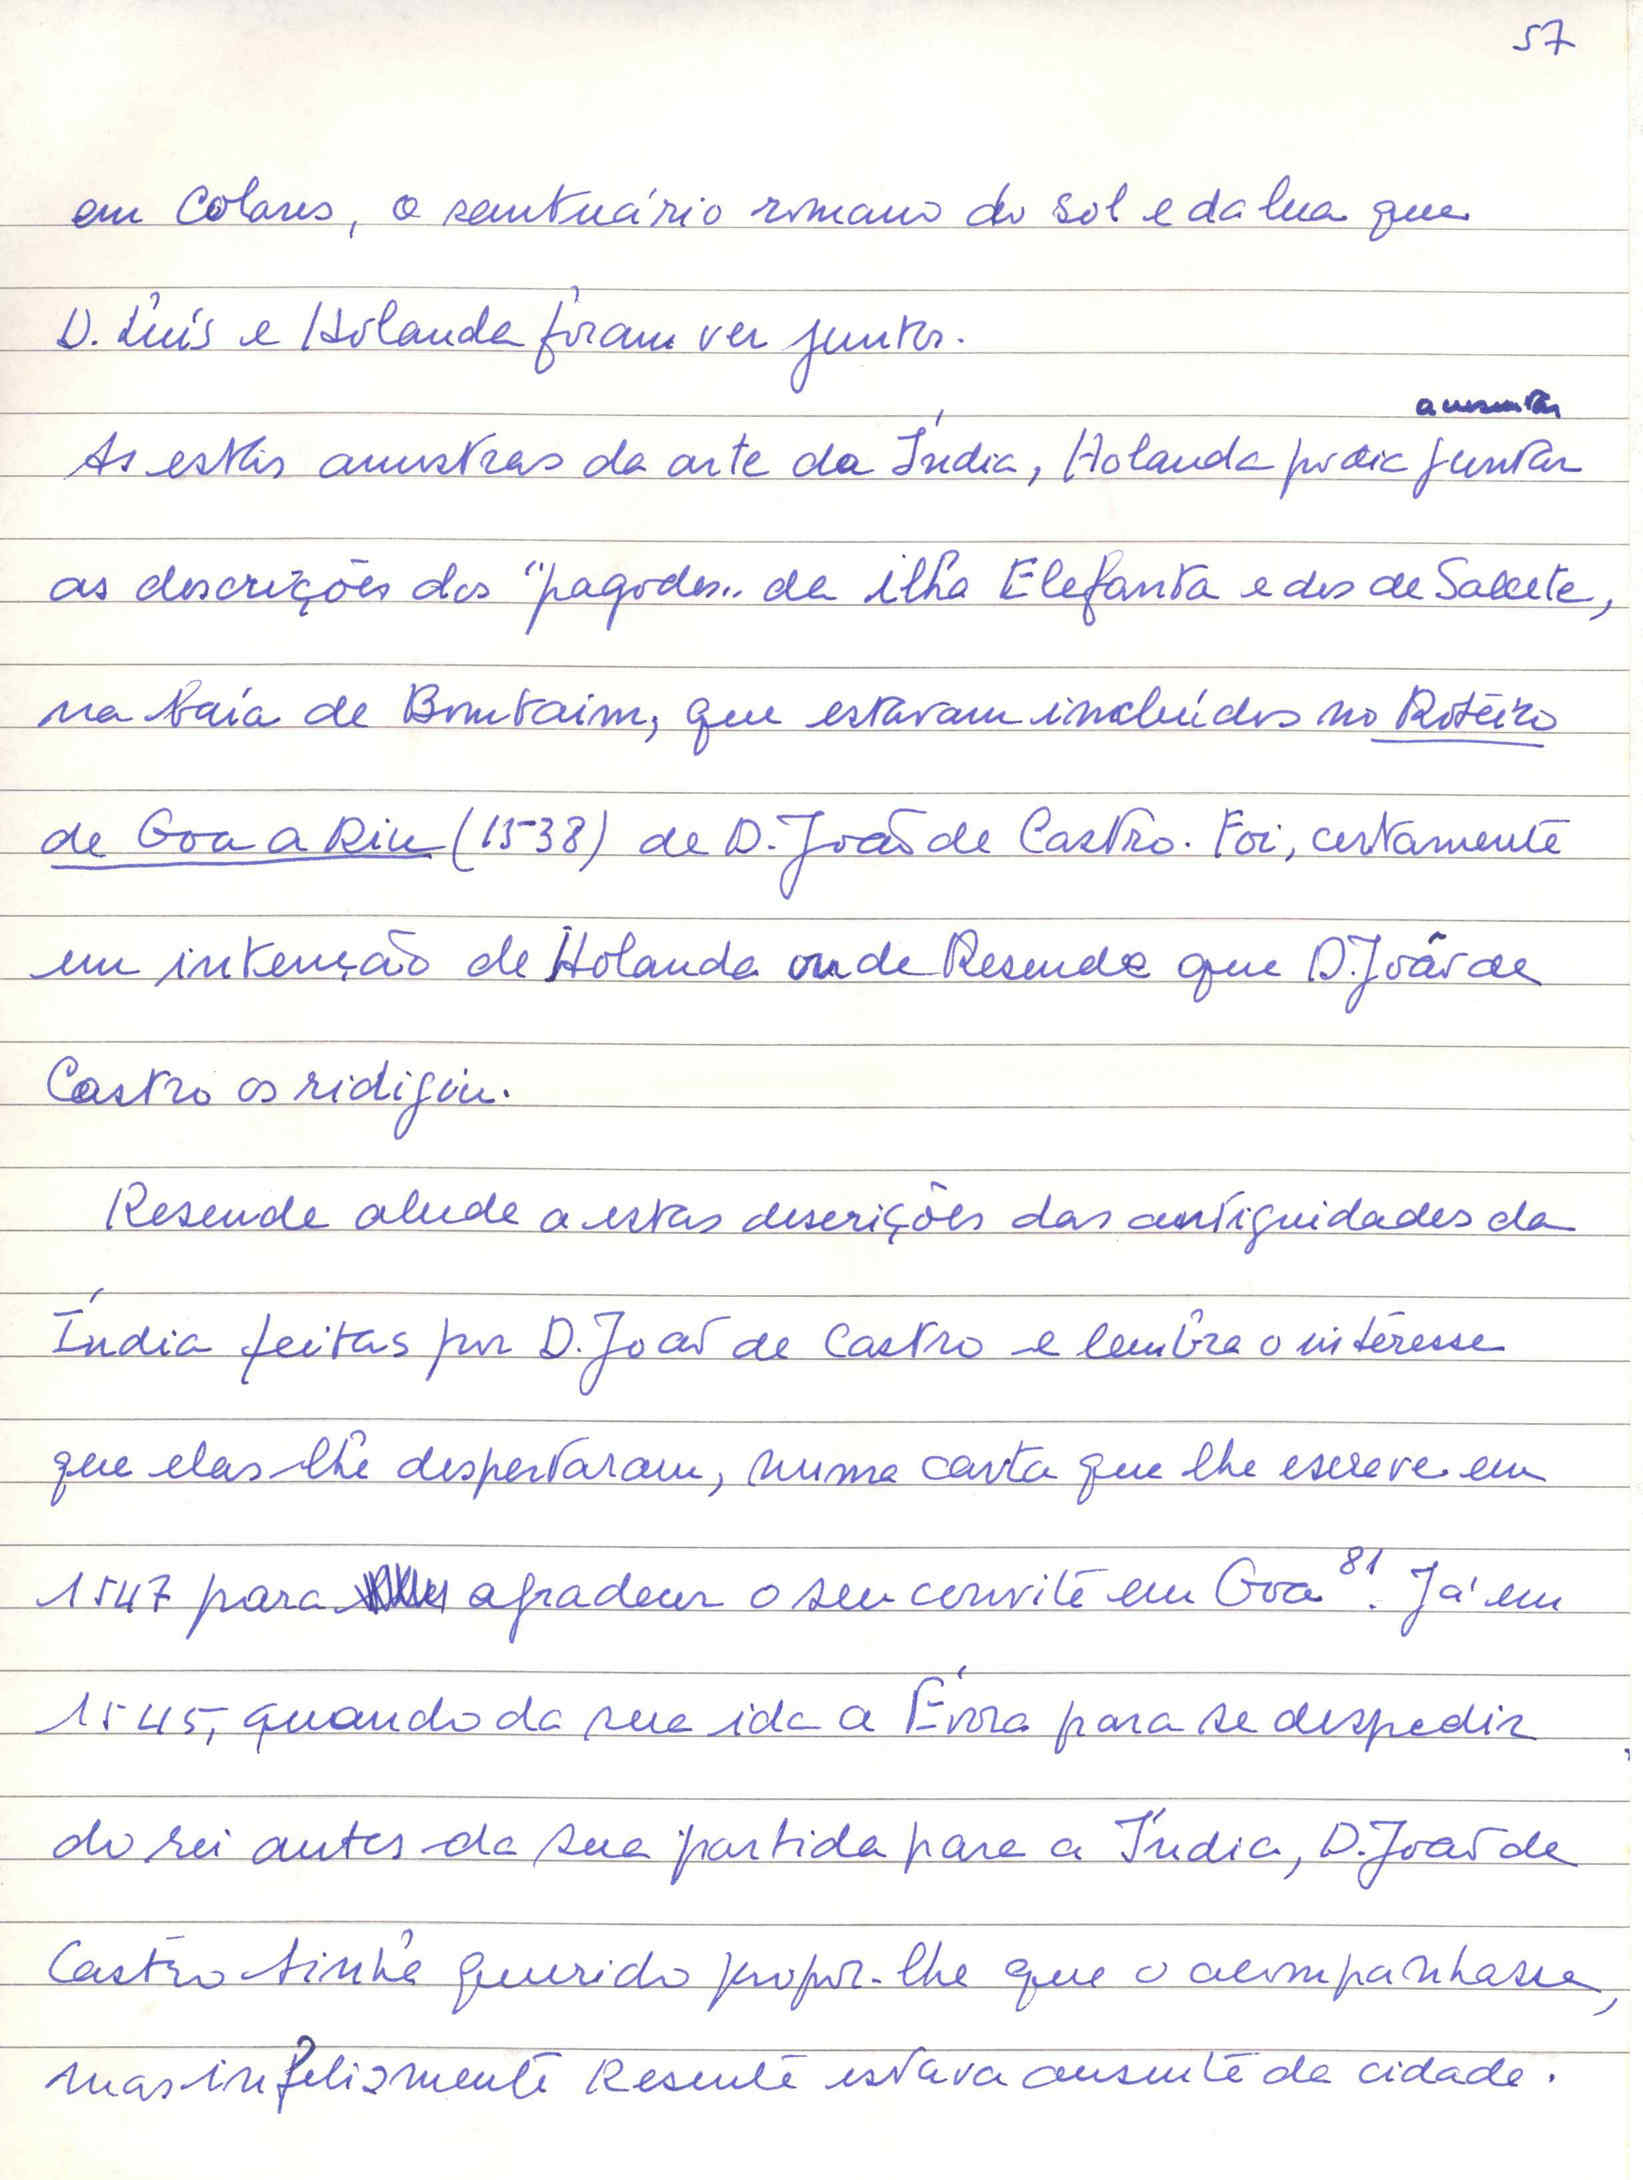 57
em Colares, o santuário romano do sol e da lua que
D. Luís e Holanda foram ver juntos.
acrescentar
As estas amostras da arte da Índia, Holanda podia juntar
as descrições dos "pagodes" da ilha Elefanta e dos de Salcete,
na baía de Bombaim, que estavam incluídos no Roteiro
de Goa a Diu (1538) de D. João de Castro. Foi, certamente
em intenção de Holanda ou de Resende que D. João de
Castro os ridigiu.
Resende alude a estas descrições das antiguidades da
Índia feitas por D. João de Castro e lembra o interesse
que elas lhe despertaram, numa carta que lhe escreve em
1547 para agradecer o seu convite em Goa 81. Já em
1545, quando da sua ida a Évora para se despedir
do rei antes da sua partida para a Índia, D. João de
Castro tinha querido propor-lhe que o acompanhasse,
mas infelizmente Resente estava ausente da cidade.